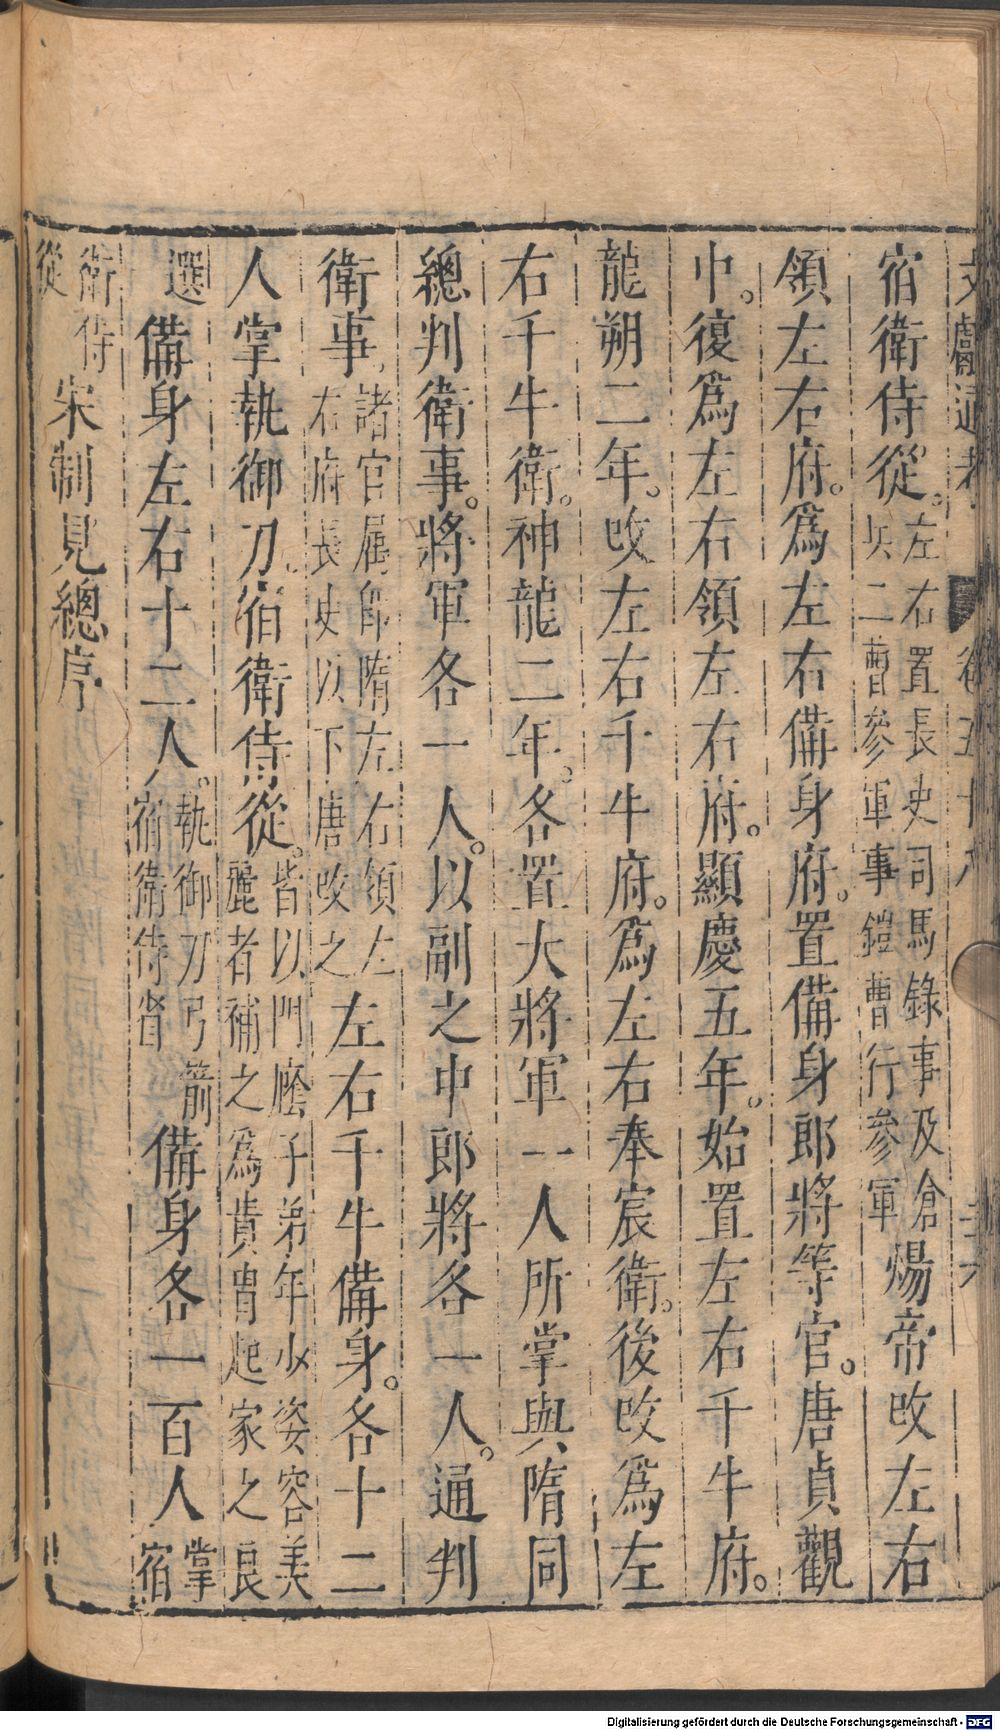 文獻通考 卷五十八
宿衛侍從。左右置長史司馬錄事及倉兵二曹參軍事鎧曹行參軍煬帝改左右
領左右府。爲左右備身府。置備身郎將等官。唐貞觀
中。復爲左右領左右府。顯慶五年。始置左右千牛府。
龍朔二年。改左右千牛府。爲左右奉宸衛。後改爲左
右千牛衛。神龍二年。各置大將軍一人所掌與隋同
總判衛事。將軍各一人。以副之中郎將各一人。通判
衛事諸官屬卽隋左右領左右府長史以下唐改之左右千牛備身。各十二
人掌執御刀宿衛侍從。皆以門廕子弟年少姿容美麗者補之爲貴胄起家之良
選備身左右十二人。執御刀弓箭宿衛侍督備身各一百人掌宿
衛侍從宋制見總序
Digitalisierung gefördert durch die Deutsche Forschungsgemeinschaft - DFG